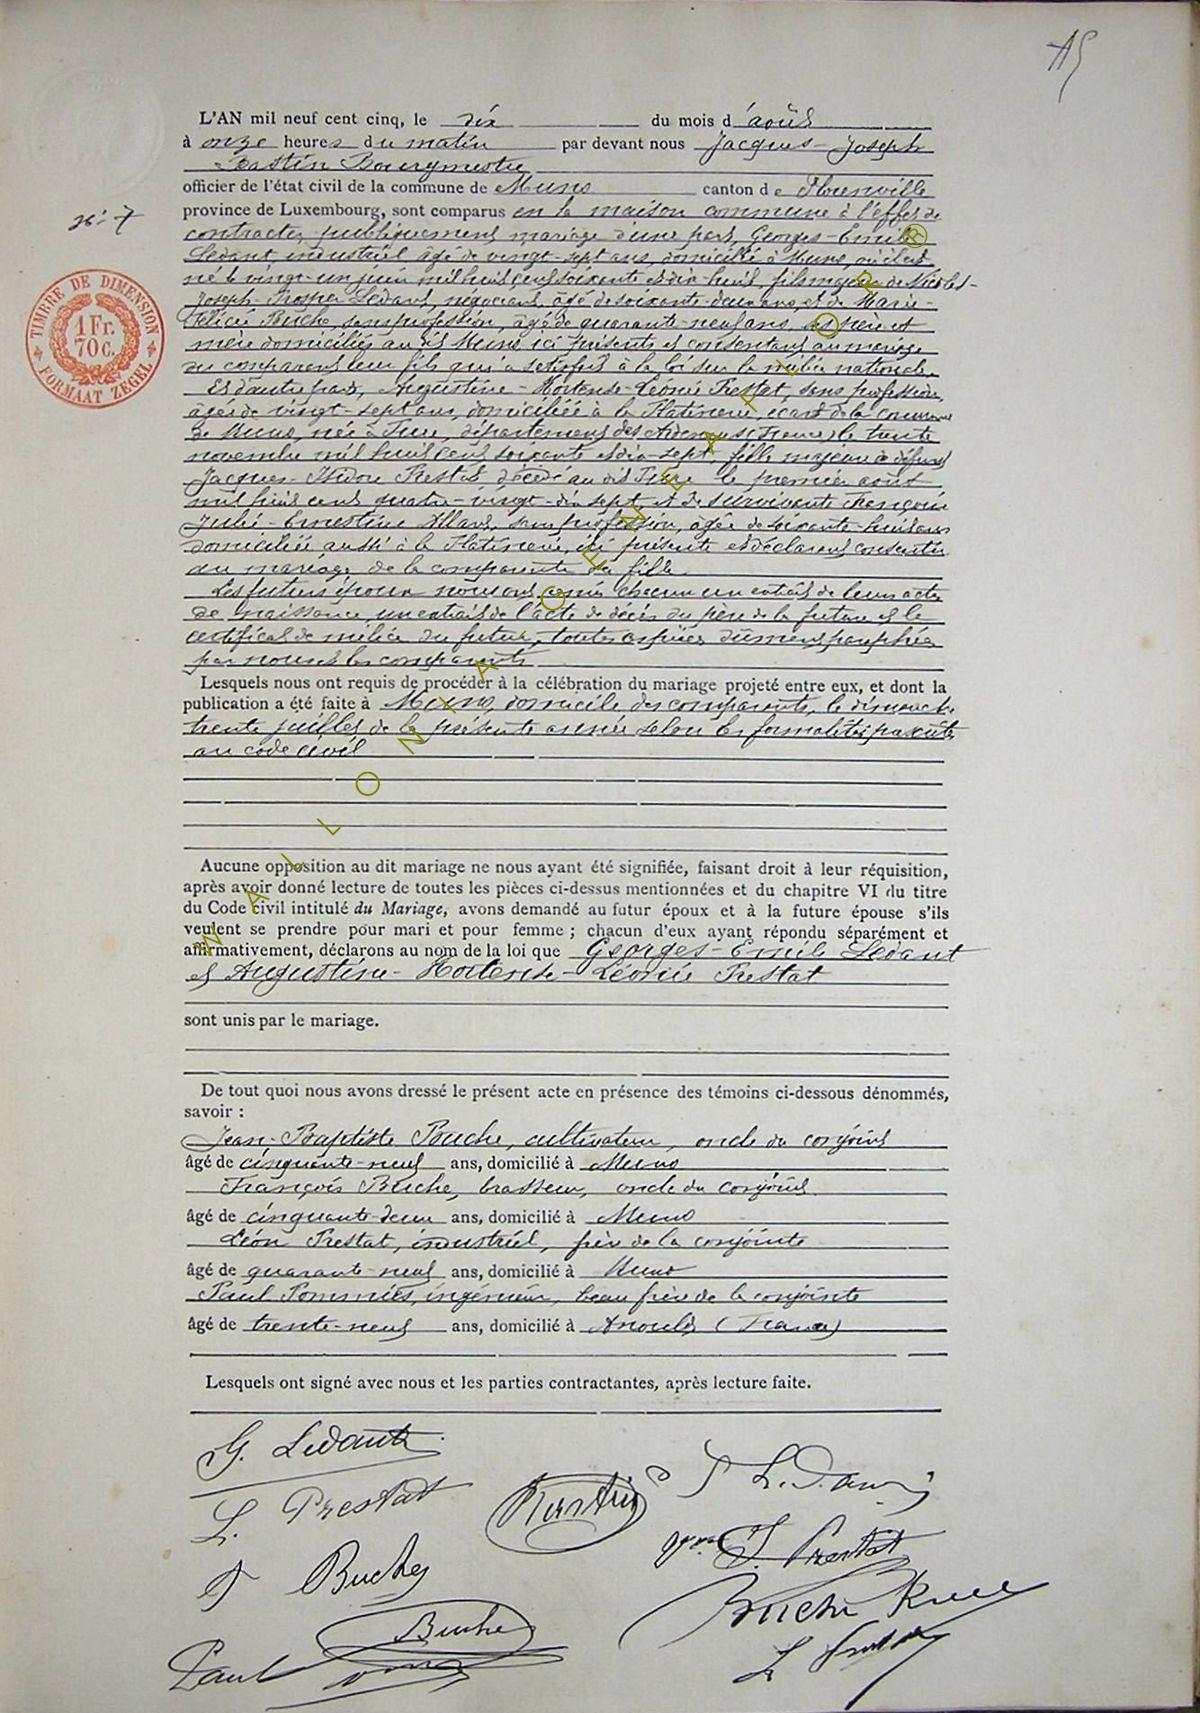 15
L'AN mil neuf cent cinq, le dix du mois d'août
à onze heures du matin par devant nous Jacques-Joseph
Bastin Bourgmestre
officier de l'état civil de la commune de Muno canton de Florenville
province de Luxembourg, sont comparus en la maison commune à l'effet de
contracter publiquement mariage d'une part, Georges-Emile
Ledant industriel âgé de vingt-sept ans, domicilié à Muno, où il est
né le vingt-un juin mil huit cent soixante et dix-huit, fils majeur de Nicolas-
Joseph-Prosper Ledant, négociant, âgé de soixante-deux ans, et de Marie-
Félicie Buche, sans profession, âgée de quarante-neuf ans, ses père et
mère domiciliés au dit Muno ici présents et consentant au mariage
du comparant leur fils qui a satisfait à la loi sur la milice nationale.
Et d'autre part, Augustine-Hortense-Léonie Prestat, sans profession,
âgée de vingt-sept ans, domiciliée à la Platinerie, écart de la commune
de Muno, née à Pure, département des Ardennes (France) le trente
novembre mil huit cent soixante et dix-sept, fille majeure de défunt
Jacques-Isidore Prestat décédé au dit Pure le premier août
mil huit cent quatre-vingt-dix sept et de survivante Françoise
Julie-Ernestine Allard, sans profession, âgée de soixante-huit ans
domiciliée aussi à la Platinerie, ici présente et déclarant consentir
au mariage de la comparante sa fille.
Les futurs époux nous ont remis chacun un extrait de leurs actes
de naissance, un extrait de l'acte de décès du père de la future et le
certificat de milice du futur, toutes ces pièces dûment paraphées
par nous et les comparants.
Lesquels nous ont requis de procéder à la célébration du mariage projeté entre eux, et dont la
publication a été faite à Muno, domicile des comparants, le dimanche
trente juillet de la présente année selon les formalités prescrites
au code civil
Aucune opposition au dit mariage ne nous ayant été signifiée, faisant droit à leur réquisition,
après avoir donné lecture de toutes les pièces ci-dessus mentionnées et du chapitre VI du titre
du Code civil intitulé du Mariage, avons demandé au futur époux et à la future épouse s'ils
veulent se prendre pour mari et pour femme ; chacun d'eux ayant répondu séparément et
affirmativement, déclarons au nom de la loi que Georges-Emile Ledant
et Augustine-Hortense-Léonie Prestat
sont unis par le mariage.
De tout quoi nous avons dressé le présent acte en présence des témoins ci-dessous dénommés,
savoir :
Jean-Baptiste Buche, cultivateur, oncle du conjoint
âgé de cinquante-neuf ans, domicilié à Muno
François Buche, brasseur, oncle du conjoint
âgé de cinquante-deux ans, domicilié à Muno
Léon Prestat, industriel, frère de la conjointe
âgé de quarante-neuf ans, domicilié à Muno
Paul Pommiès, ingénieur, beau frère de la conjointe
âgé de trente-neuf ans, domicilié à (France)
Lesquels ont signé avec nous et les parties contractantes, après lecture faite.
G. Ledant
L. Prestat
Bastin
Ledant
J. Prestat
Buche
Buche
Buche
Paul
TIMBRE DE DIMENSION
1 Fr.
70 c.
FORMAAT ZEGEL
WALLONIA - GENEAFLOR ®